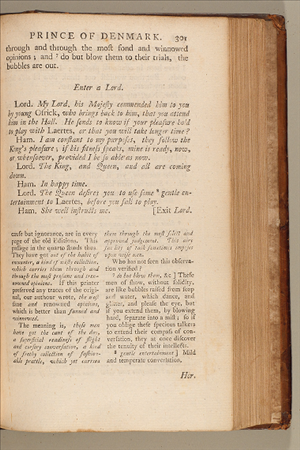 PRINCE OF DENMARK. 301
through and through the most fond and winnowed
opinions; and ² do but blow them to their trials, the
bubbles are out.
Enter a Lord.
Lord. My Lord, his Majesty commended him to you
by young Ostrick, who brings back to him, that you attend
him in the Hall. He sends to know if your pleasure hold
to play with Laertes, or that you will take longer time?
Ham. I am constant to my purposes, they follow the
King's pleasure; if his fitness speaks, mine is ready, now,
or whensoever, provided I be so able as now.
Lord. The King, and Queen, and all are coming
down.
Ham. In happy time.
Lord. The Queen desires you to use some ³ gentle en-
tertainment to Laertes, before you fall to play.
Ham. She well instructs me. [Exit Lord.
cause but ignorance, are in every
page of the old editions. This
passage in the quarto stands thus.
They have got out of the habit of
encounter, a kind of misty collection,
which carries them through and
through the most profane and tren-
nowned opinions. If this printer
preserved any traces of the origi-
nal, our authour wrote, the most
sane and renowned opinions,
which is better than fanned and
winnowed.
The meaning is, these men
have got the cant of the day,
a superficial readiness of slight
and cursory conversation, a kind
of frothy collection of fashion-
able prattle, which yet carries
them through the most select and
approved judgment. This airy
facility of talk sometimes imposes
upon wise men.
Who has not seen this observa-
tion verified?
² do but blow them, &c.] These
men of show, without solidity,
are like bubbles raised from soap
and water, which dance, and
glitter, and please the eye, but
if you extend them, by blowing
hard, separate into a mist; so if
you oblige these specious talkers
to extend their compass of con-
versation, they at once discover
the tenuity of their intellects.
³ gentle entertainment] Mild
and temperate conversation.
Hor.